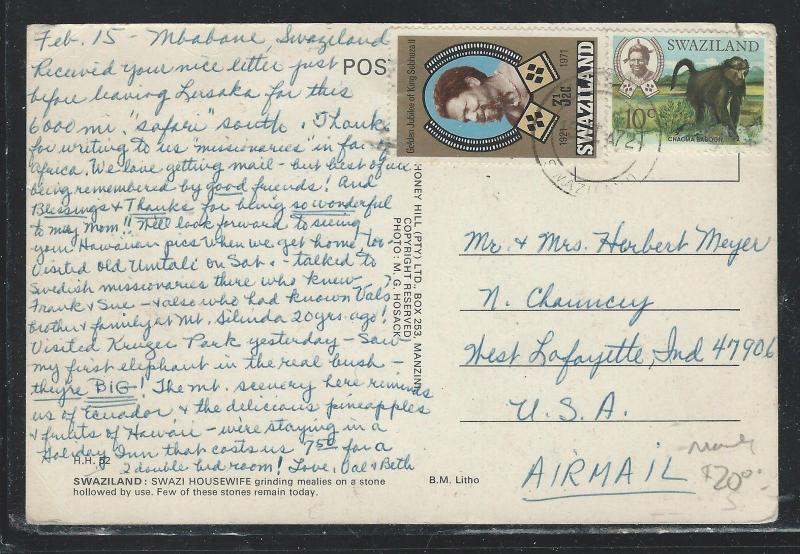 Feb. 15 - Mbabane, Swaziland
Received your nice letter just
before leaving Lusaka for this
6000 mi. "safari" south. Thanks
for writing to us "missionaries" in far
Africa. We love getting mail - but best of all
being remembered by good friends! And
Blessings & Thanks for being so wonderful
to my Mom!! We'll look forward to seeing
your Hawaiian pics when we get home, too -
Visited Old Umtali on Sat. - talked to
Swedish missionaries there who knew
Frank & Sue - & also who had known Val's
brother & family at Mt. Silinda 20 yrs. ago!
Visited Kruger Park yesterday - Saw
my first elephant in the real bush -
they're BIG! The mt. scenery here reminds
us of Ecuador & the delicious pineapples
& fruits of Hawaii - we're staying in a
Holiday Inn that costs us 7.50 for a
2 double bed room! Love, Val & Beth
H.H. 52
SWAZILAND: SWAZI HOUSEWIFE grinding mealies on a stone
hollowed by use. Few of these stones remain today.
POS
HONEY HILL (PTY) LTD., BOX 253, MANZINI
COPYRIGHT RESERVED)
PHOTO: M. G. HOSACK
B.M. Litho
Golden Jubilee of King Sobhuza II
1921 1971
3½c
SWAZILAND
SWAZILAND
10c
CHACMA BABOON
SWAZILAND
Mr. & Mrs. Herbert Meyer
N. Chauncey
West Lafayette, Ind 47906
U.S.A.
AIRMAIL
$20.00